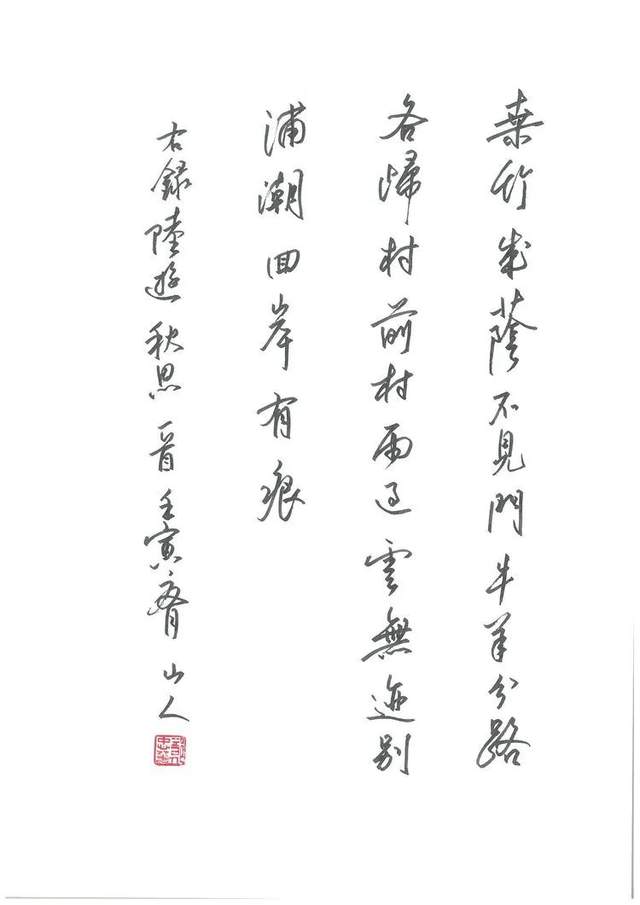 桒竹成蔭不見門牛羊分路
各歸村前村雨過雲無迹別
浦潮回岸有痕
右錄陸遊秋思一首壬寅山人